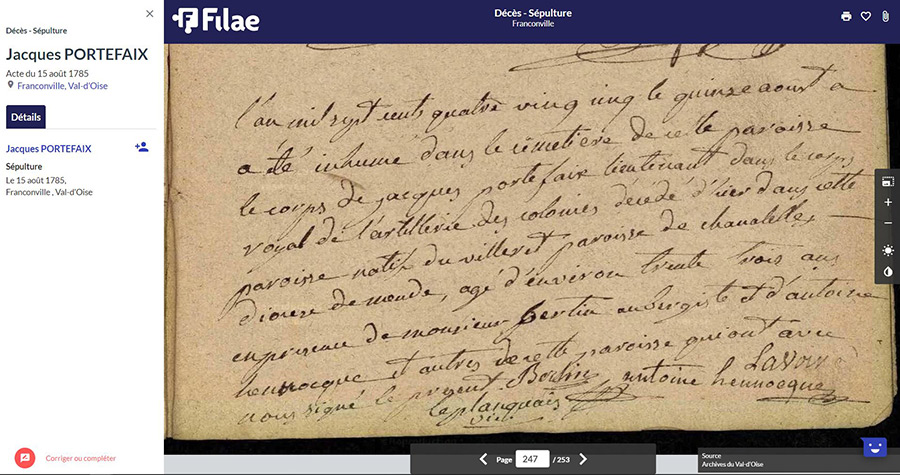 Décès - Sépulture
Jacques PORTEFAIX
Acte du 15 août 1785
Franconville, Val-d'Oise
Détails
Jacques PORTEFAIX
Sépulture
Le 15 août 1785,
Franconville , Val-d'Oise
Corriger ou compléter
Filae
Décès - Sépulture
Franconville
l'an mil sept cents quatre ving cinq le quinze aoust a
a été inhumé dans le cemetière de cette paroisse
le corps de jacques portefaix lieutenant dans le corps
royal de l'artillerie des colonies décédé d'hier dans cette
paroisse natif du villeret paroisse de chanaleilles
diocese de mende, agé d'environ trente trois ans
en presence de monsieur bertin aubergiste et d'antoine
hennocque et autres de cette paroisse qui ont avec
nous signé le present antoine hennocque
leplanquais
Page 247 / 253
Source
Archives du Val-d'Oise